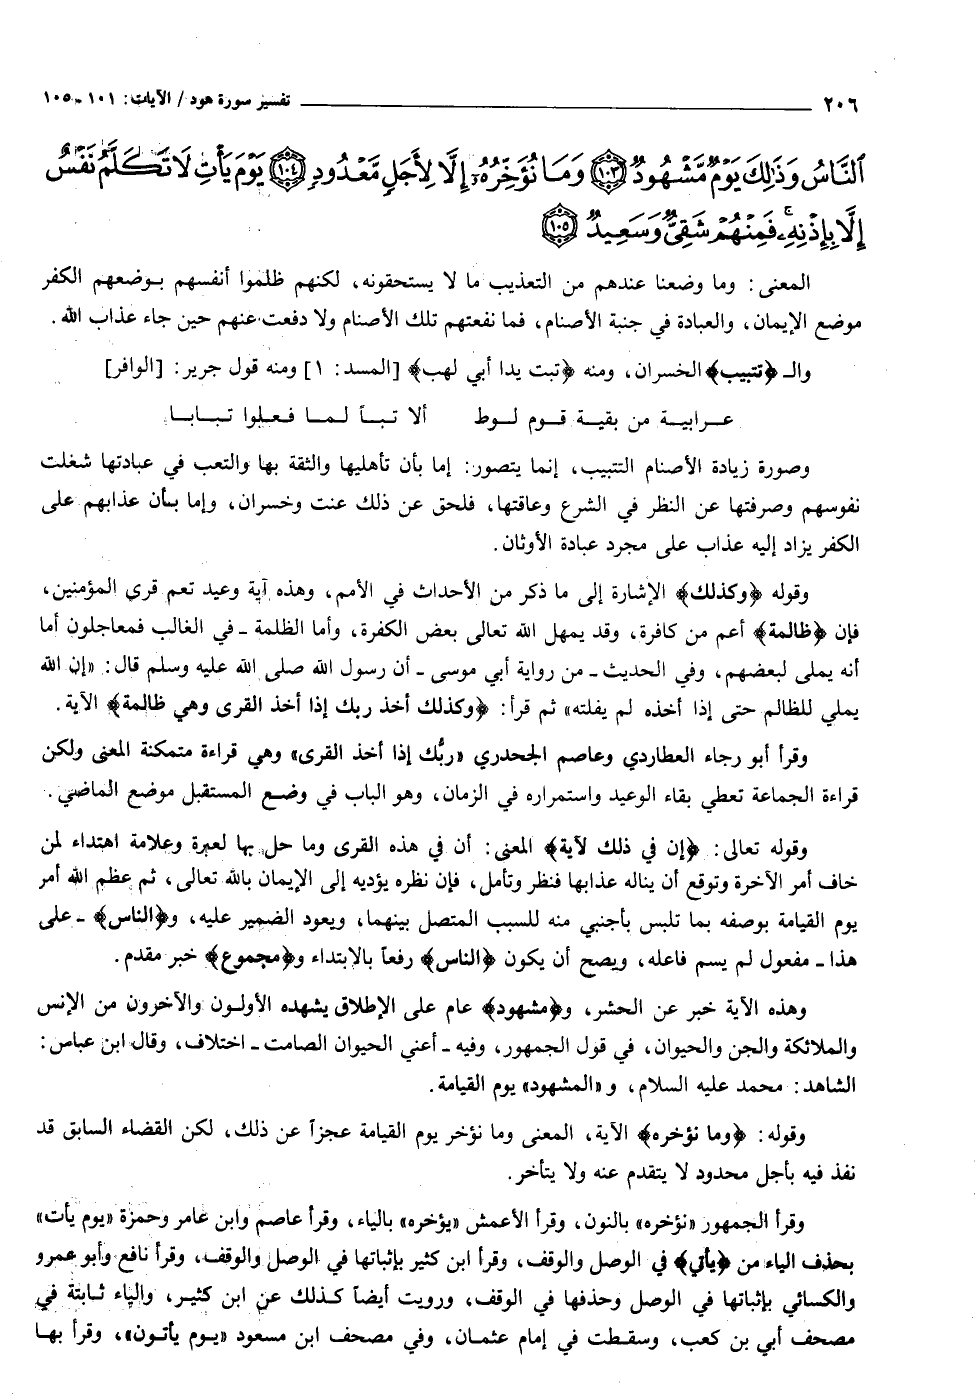 ٢٠٦ تفسير سورة هود / الآيات: ١٠١ - ١٠٥
ٱلنَّاسُ وَذَٰلِكَ يَوْمٌ مَّشْهُودٌ ﴿١٠٣﴾ وَمَا نُؤَخِّرُهُۥٓ إِلَّا لِأَجَلٍ مَّعْدُودٍ ﴿١٠٤﴾ يَوْمَ يَأْتِ لَا تَكَلَّمُ نَفْسٌ
إِلَّا بِإِذْنِهِۦ ۚ فَمِنْهُمْ شَقِىٌّ وَسَعِيدٌ ﴿١٠٥﴾
المعنى: وما وضعنا عندهم من التعذيب ما لا يستحقونه، لكنهم ظلموا أنفسهم بوضعهم الكفر
موضع الإيمان، والعبادة في جنبة الأصنام، فما نفعتهم تلك الأصنام ولا دفعت عنهم حين جاء عذاب الله.
والـ ﴿تتبيب﴾ الخسران، ومنه ﴿تبت يدا أبي لهب﴾ [المسد: ١] ومنه قول جرير: [الوافر]
عرابية من بقية قوم لوط ألا تباً لما فعلوا تبابا
وصورة زيادة الأصنام التتبيب، إنما يتصور: إما بأن تأهليها والثقة بها والتعب في عبادتها شغلت
نفوسهم وصرفتها عن النظر في الشرع وعاقتها، فلحق عن ذلك عنت وخسران، وإما بأن عذابهم على
الكفر يزاد إليه عذاب على مجرد عبادة الأوثان.
وقوله ﴿وكذلك﴾ الإشارة إلى ما ذكر من الأحداث في الأمم، وهذه آية وعيد تعم قرى المؤمنين،
فإن ﴿ظالمة﴾ أعم من كافرة، وقد يمهل الله تعالى بعض الكفرة، وأما الظلمة - في الغالب فمعاجلون أما
أنه يملى لبعضهم، وفي الحديث - من رواية أبي موسى - أن رسول الله صلى الله عليه وسلم قال: «إن الله
يملي للظالم حتى إذا أخذه لم يفلته» ثم قرأ: ﴿وكذلك أخذ ربك إذا أخذ القرى وهي ظالمة﴾ الآية.
وقرأ أبو رجاء العطاردي وعاصم الجحدري «ربُّك إذا أخذ القرى» وهي قراءة متمكنة المعنى ولكن
قراءة الجماعة تعطي بقاء الوعيد واستمراره في الزمان، وهو الباب في وضع المستقبل موضع الماضي.
وقوله تعالى: ﴿إن في ذلك لآية﴾ المعنى: أن في هذه القرى وما حل بها لعبرة وعلامة اهتداء لمن
خاف أمر الآخرة وتوقع أن يناله عذابها فنظر وتأمل، فإن نظره يؤديه إلى الإيمان بالله تعالى، ثم عظم الله أمر
يوم القيامة بوصفه بما تلبس بأجنبي منه للسبب المتصل بينهما، ويعود الضمير عليه، و﴿الناس﴾ - على
هذا - مفعول لم يسم فاعله، ويصح أن يكون ﴿الناس﴾ رفعاً بالابتداء و﴿مجموع﴾ خبر مقدم.
وهذه الآية خبر عن الحشر، و﴿مشهود﴾ عام على الإطلاق يشهده الأولون والآخرون من الإنس
والملائكة والجن والحيوان، في قول الجمهور، وفيه - أعني الحيوان الصامت - اختلاف، وقال ابن عباس:
الشاهد: محمد عليه السلام، و «المشهود» يوم القيامة.
وقوله: ﴿وما نؤخره﴾ الآية، المعنى وما نؤخر يوم القيامة عجزاً عن ذلك، لكن القضاء السابق قد
نفذ فيه بأجل محدود لا يتقدم عنه ولا يتأخر.
وقرأ الجمهور «نؤخره» بالنون، وقرأ الأعمش «يؤخره» بالياء، وقرأ عاصم وابن عامر وحمزة «يوم يأت»
بحذف الياء من ﴿يأتي﴾ في الوصل والوقف، وقرأ ابن كثير بإثباتها في الوصل والوقف، وقرأ نافع وأبو عمرو
والكسائي بإثباتها في الوصل وحذفها في الوقف، ورويت أيضاً كذلك عن ابن كثير، والياء ثابتة في
مصحف أبي بن كعب، وسقطت في إمام عثمان، وفي مصحف ابن مسعود «يوم يأتون»، وقرأ بها